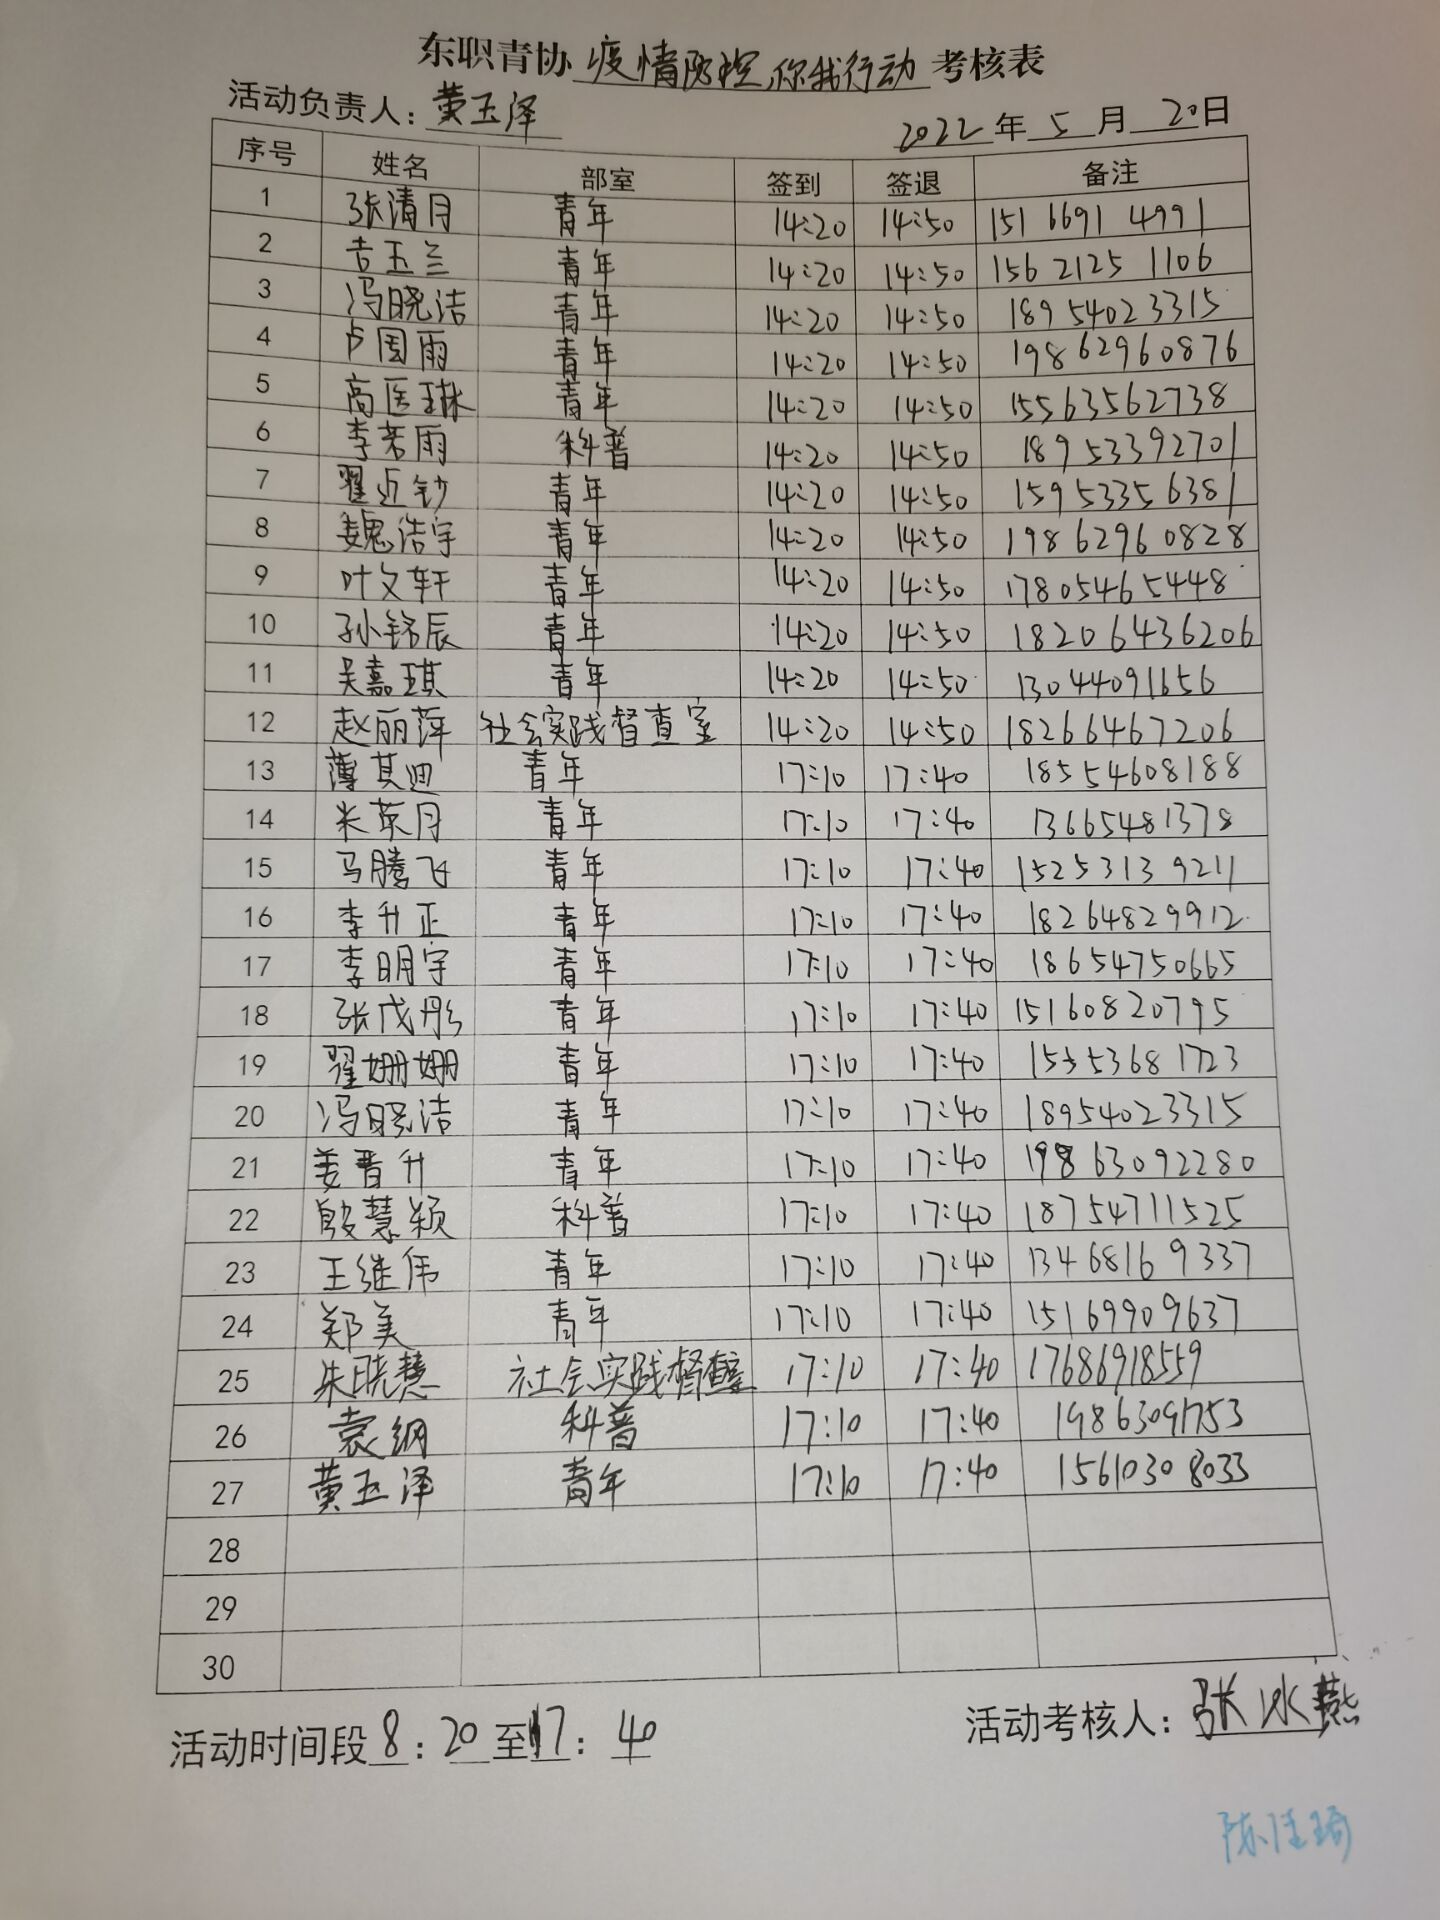 东职青协 疫情防控,你我行动 考核表
活动负责人: 黄玉泽
2022 年 5 月 20日
序号 姓名 部室 签到 签退 备注
1 张清月 青年 14:20 14:50 151 6691 4991
2 吉玉兰 青年 14:20 14:50 156 2125 1106
3 冯晓洁 青年 14:20 14:50 18954023315
4 卢国雨 青年 14:20 14:50 19862960876
5 高医琳 青年 14:20 14:50 15563562738
6 李若雨 科普 14:20 14:50 18953392701
7 翟近钞 青年 14:20 14:50 15953356381
8 魏浩宇 青年 14:20 14:50 19862960828
9 叶文轩 青年 14:20 14:50 17805465448
10 孙铭辰 青年 14:20 14:50 18206436206
11 吴嘉琪 青年 14:20 14:50 13044091656
12 赵丽萍 社会实践督查室 14:20 14:50 18266467206
13 薄其迪 青年 17:10 17:40 18554608188
14 米荣月 青年 17:10 17:40 13665481378
15 马腾飞 青年 17:10 17:40 15253139211
16 李升正 青年 17:10 17:40 18264829912
17 李明宇 青年 17:10 17:40 18654750665
18 张茂彤 青年 17:10 17:40 15160820795
19 翟姗姗 青年 17:10 17:40 15553681723
20 冯晓洁 青年 17:10 17:40 18954023315
21 姜晋升 青年 17:10 17:40 19863092280
22 殷慧颖 科普 17:10 17:40 18754711525
23 王继伟 青年 17:10 17:40 13468169337
24 郑美 青年 17:10 17:40 15169909637
25 朱晓慧 社会实践督查室 17:10 17:40 17686918559
26 袁纲 科普 17:10 17:40 19863091753
27 黄玉泽 青年 17:10 17:40 15610308033
28
29
30
活动时间段 8:20 至17:40
活动考核人: 张冰燕
陈佳琦